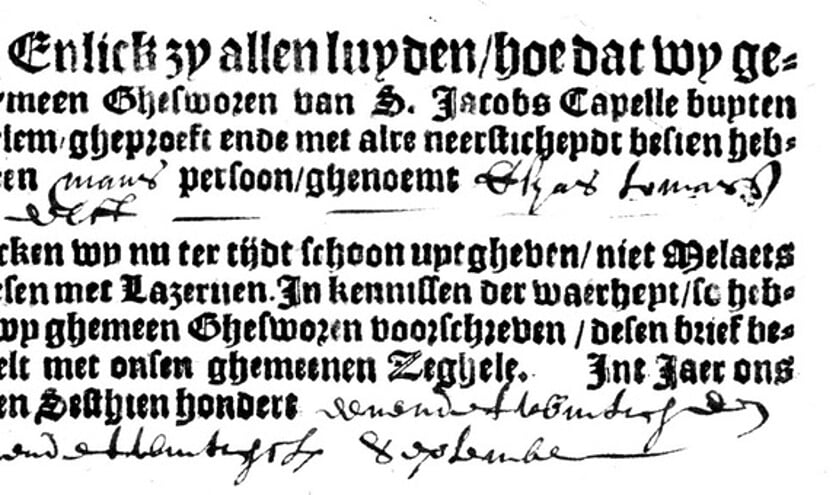 Enlick zy allen luyden/hoe dat wy ge-
meen Ghesworen van S. Jacobs Capelle buyten
lem/gheproeft ende met alre neersticheydt besien heb-
een mans persoon/ghenoemt
delft
cken wy nu ter tijdt schoon uytgheven/niet Melaets
esen met Lazeruen. In kennissen der waerheyt/so heb-
wy ghemeen Ghesworen voorschreven / desen brief be-
elt met onsen ghemeenen Zeghele. Int Jaer ons
en Sesthien hondert
September